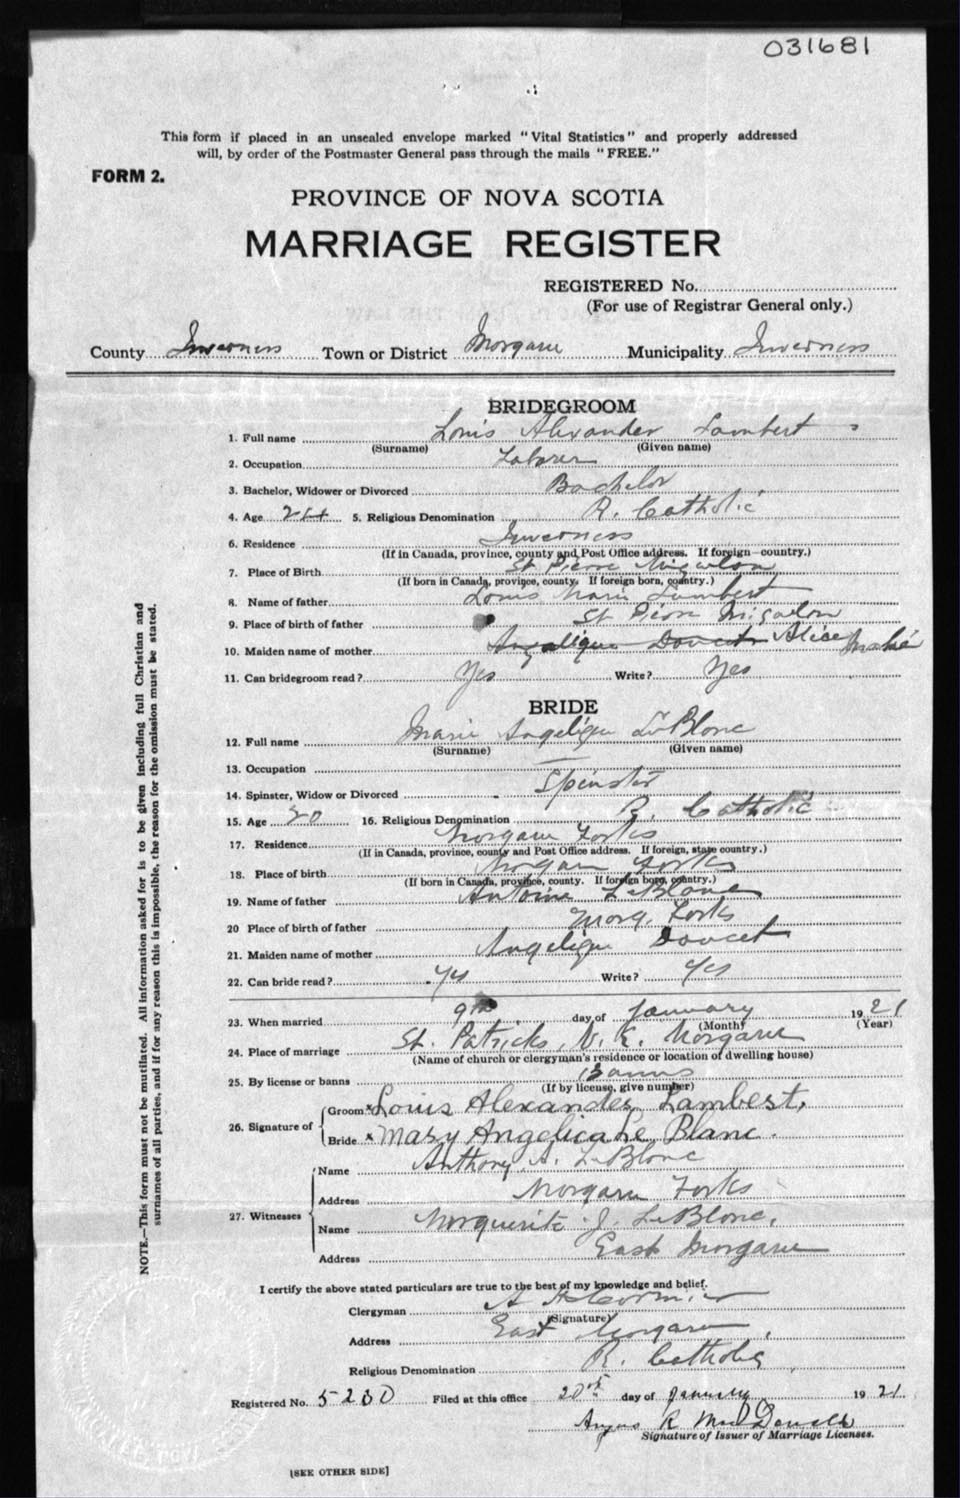 031681
This form if placed in an unsealed envelope marked "Vital Statistics" and properly addressed
will, by order of the Postmaster General pass through the mails "FREE."
FORM 2.
PROVINCE OF NOVA SCOTIA
MARRIAGE REGISTER
REGISTERED No.
(For use of Registrar General only.)
County Inverness Town or District Margaree Municipality Inverness
BRIDEGROOM
1. Full name Louis Alexander Lambert
(Surname) (Given name)
2. Occupation Laborer
3. Bachelor, Widower or Divorced Bachelor
4. Age 24 5. Religious Denomination R. Catholic
6. Residence Inverness
(If in Canada, province, county and Post Office address. If foreign—country.)
7. Place of Birth St Pierre Miquelon
(If born in Canada, province, county. If foreign born, country.)
8. Name of father Louis Marie Lambert
9. Place of birth of father St Pierre Miquelon
10. Maiden name of mother Angelique Doucet Alice
11. Can bridegroom read? Yes Write? Yes
BRIDE
12. Full name Marie Angelique LeBlanc
(Surname) (Given name)
13. Occupation
14. Spinster, Widow or Divorced Spinster
15. Age 20 16. Religious Denomination R. Catholic
17. Residence Margaree Forks
(If in Canada, province, county and Post Office address. If foreign, state country.)
18. Place of birth Margaree Forks
(If born in Canada, province, county. If foreign born, country.)
19. Name of father Antoine LeBlanc
20 Place of birth of father Marg. Forks
21. Maiden name of mother Angelique Doucet
22. Can bride read? Yes Write? Yes
23. When married 9th day of January 1921
(Month) (Year)
24. Place of marriage St. Patricks, N. E. Margaree
(Name of church or clergyman's residence or location of dwelling house)
25. By license or banns Banns
(If by license, give number)
26. Signature of
Groom x Louis Alexander Lambert.
Bride x Mary Angelica Le Blanc.
27. Witnesses
Name Anthony A. LeBlanc
Address Margaree Forks
Name Marguerite J. LeBlanc.
Address East Margaree
I certify the above stated particulars are true to the best of my knowledge and belief.
Clergyman A H Cormier
(Signature)
Address East Margaree,
Religious Denomination R. Catholic
Registered No. 5230 Filed at this office 20th day of January 1921
Angus R MacDonald
Signature of Issuer of Marriage Licenses.
[SEE OTHER SIDE]
NOTE.—This form must not be mutilated. All information asked for is to be given including full Christian and
surnames of all parties, and if for any reason this is impossible, the reason for the omission must be stated.